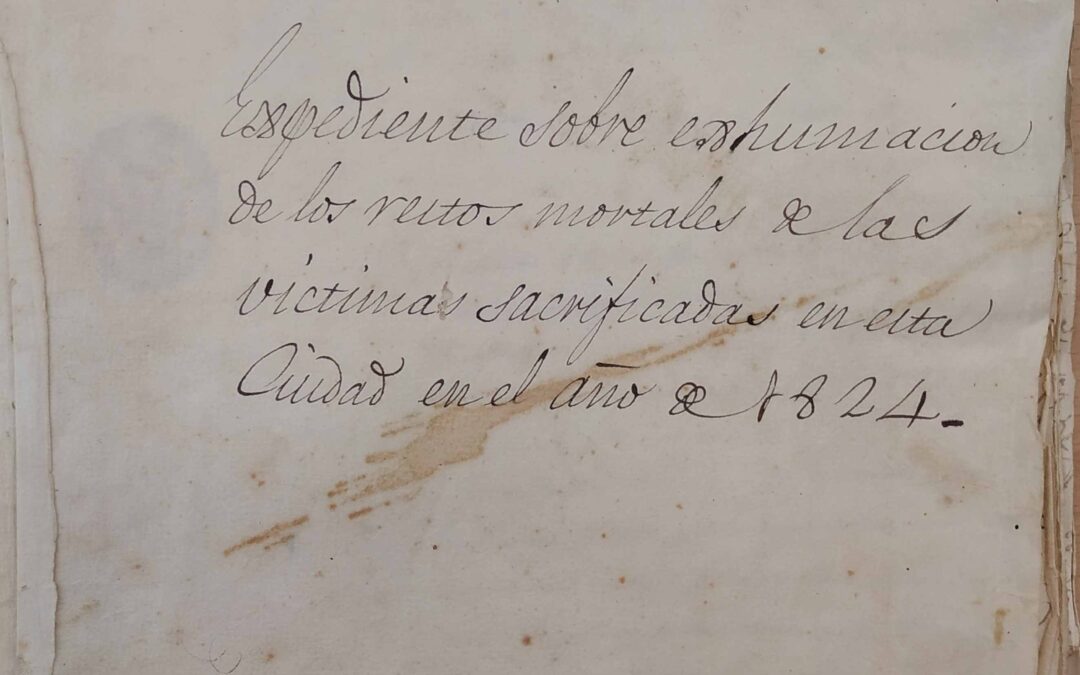 Expediente sobre exhumacion
de los restos mortales de las
victimas sacrificadas en esta
Ciudad en el año de 1824.